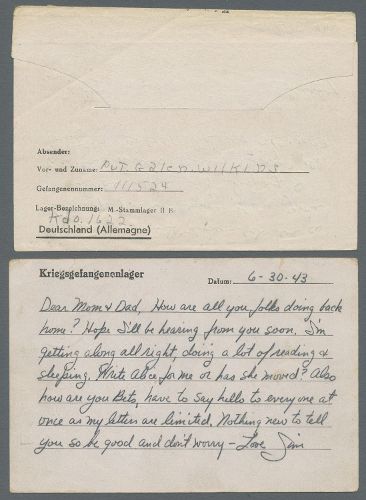 Absender:
Vor- und Zuname: Pvt. Galen. Wilkins
Gefangenennummer: 111524
Lager-Bezeichnung: M.-Stammlager II B
Kdo. 1622
Deutschland (Allemagne)
Kriegsgefangenenlager Datum: 6-30-43
Dear Mom & Dad, How are all you folks doing back
home? Hope I'll be hearing from you soon. I'm
getting along all right, doing a lot of reading &
sleeping. Write Alice for me or has she moved? Also
how are you Bets, have to say hello to everyone at
once as my letters are limited. Nothing new to tell
you so be good and don't worry - Love Jim